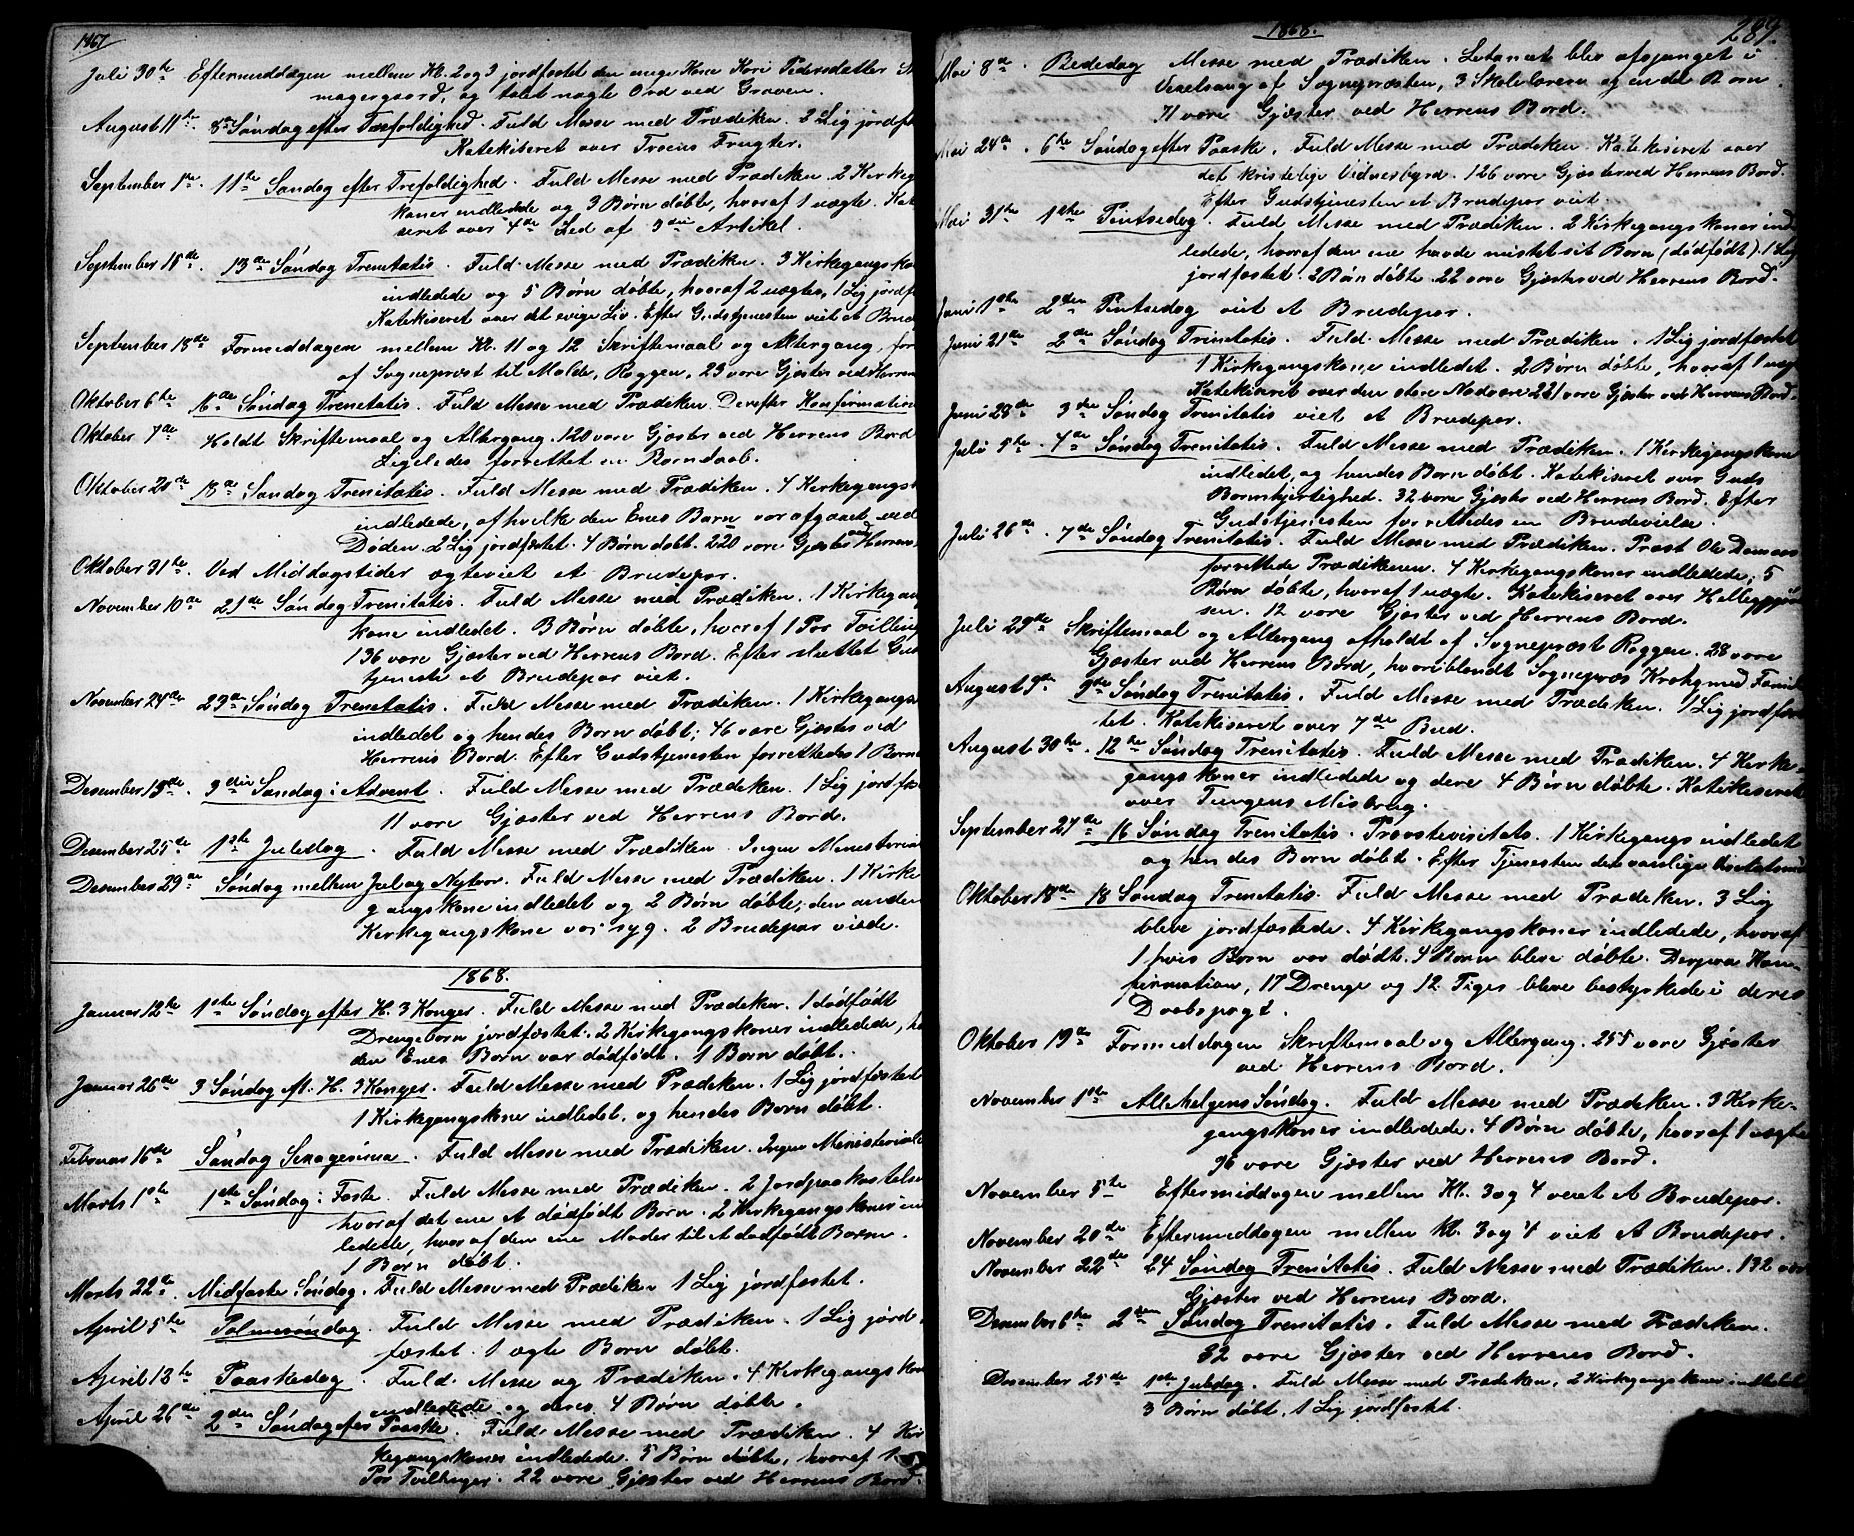 1867
Juli 30te Eftermiddagen mellem Kl. 2 og 3 jordfæstet den unge Kone Kari Pedersdatter
magergaard, og talet nogle Ord ved Graven.
August 11te 8de Søndag efter Trefoldighed. Fuld Messe med Prædiken. 2 Lig jordfæ
Katekiseret over Troens Frugter.
September 1ste. 11te Søndag efter Trefoldighed. Fuld Messe med Prædiken. 2 Kirkeg
koner indledede og 3 Børn døbte, hvoraf 1 uægte. Kate
seret over 4de Led af 3die Artikel.
September 15de. 13de Søndag Trenitatis. Fuld Messe med Prædiken. 3 Kirkegangsko
indledede og 5 Børn døbte, hvoraf 2 uægte, 1 Lig jordfæ
Katekiseret over det evige Liv. Efter Gudstjenesten viet et Brud
September 18de Formeddagen mellem Kl. 11 og 12 Skriftemaal og Altergang, forr
af Sogneprest til Molde, Roggen, 23 vare Gjester ved Herren
Oktober 6te 16de Søndag Trenitatis. Fuld Messe med Prædiken. Derefter Konfirmation
Oktober 7de Holdt Skriftemaal og Altergang. 120 vare Gjester ved Herrens Bord
Ligeledes forrettet en Barndaab.
Oktober 20de 18de Søndag Trenitatis. Fuld Messe med Prædiken. 4 Kirkegangsk
indledede, af hvilke den Enes Barn var afgaaet ved
Døden. 2 Lig jordfæstet. 4 Børn døbt. 220 vare Gjester ved Herrens
Oktober 31te. Ved Middagstider ægteviet et Brudepar.
November 10de 21de Søndag Trenitatis. Fuld Messe med Prædiken. 1 Kirkegang
kone indledet. 3 Børn døbte, hvoraf 1 Par Tvilling
136 vare Gjæster ved Herrens Bord. Efter sluttet Gud
tjeneste et Brudepar viet.
November 24de 23de Søndag Trenitatis. Fuld Messe med Prædiken. 1 Kirkegangsk
indledet og hendes Barn døbt; 46 vare Gjæster ved
Herrens Bord. Efter Gudstjenesten forrettedes 1 Barne
Desember 15de. 3die Søndag i Advent. Fuld Messe med Prædiken. 1 Lig jordfæs
11 vare Gjæster ved Herrens Bord.
Desember 25de 1ste Juledag. Fuld Messe med Prædiken. Ingen Menesterial
Desember 29de Søndag mellem Jul og Nytaar. Fuld Messe med Prædiken. 1 Kirke
gangskone indledet og 2 Børn døbte, den anden
Kirkegangskone var syg. 2 Brudepar viede.
1868.
Januar 12te 1ste Søndag efter H. 3 Konger. Fuld Messe med Prædiken. 1 dødfødt
Drengebarn jordfæstet. 2 Kirkegangskoner indledede, h
den Enes Barn var dødfødt. 1 Barn døbt.
Januar 26de 3 Søndag ef. H. 3 Konger. Fuld Messe med Prædiken. 1 Lig jordfæstet
1 Kirkegangskone indledet, og hendes Barn døbt.
Februar 16de Søndag Sexagesima. Fuld Messe med Prædiken. Ingen Menisterial
Marts 1ste 1ste Søndag i Faste. Fuld Messe med Prædiken. 2 Jordpaakastelser
hvoraf det ene et dødfødt Barn. 2 Kirkegangskoner ind
ledede, hvoraf den ene Moder til et dødfødt Barn.
1 Barn døbt.
Marts 22de. Midfaste Søndag. Fuld Messe med Prædiken 1 Lig jordfæstet.
April 5te Palmesøndag. Fuld Messe med Prædiken. 1 Lig jord-
fæstet. 1 ægte Barn døbt.
April 12te Paaskedag. Fuld Messe og Prædiken. 4 Kirkegangskon
indledede og deres 4 Børn døbte.
April 26de 2den Søndag efter Paaske. Fuld Messe med Prædiken. 4 Kir
kegangskoner indledede. 5 Børn døbte, hvoraf 1
Par Tvillinger. 22 vare Gjæster ved Herrens Bord.
1868.
289.
Mai 8de. Bededag Messe med Prædiken. Letaniet blev afsjunget i
Vexelsang af Sognepræsten, 3 Skolelærere og en del Børn.
71 vare Gjæster ved Herrens Bord.
Mai 24de. 6te Søndag efter Paaske. Fuld Messe med Prædiken. Katekiseret over
det kristelige Vidnesbyrd. 126 vare Gjæster ved Herrens Bord.
Efter Gudstjenesten et Brudepar viet.
Mai 31te 1ste Pintsedag. Fuld Messe med Prædiken. 2 Kirkegangskoner ind
ledede, hvoraf den ene havde mistet sit Barn (dødfødt). 1 Lig
jordfæstet. 2 Børn døbte. 22 vare Gjæster ved Herrens Bord.
Juni 1ste 2den Pintsedag viet et Brudepar.
Juni 21de 2de Søndag Trinitatis. Fuld Messe med Prædiken. 1 Lig jordfæstet
1 Kirkegangskone indledet. 2 Børn døbte, hvoraf 1 uæg
Katekiseret over den store Nadvere. 221 vare Gjæster ved Herrens Bord.
Juni 28de 3de Søndag Trenitatis viet et Brudepar.
Juli 5te. 4de Søndag Trenitatis. Fuld Messe med Prædiken. 1 Kirkegangskone
indledet, og hendes Barn døbt. Katekiseret over Guds
Barmhjertighed. 32 vare Gjæster ved Herrens Bord. Efter
Gudstjenesten forrettedes en Brudevielse.
Juli 26de. 7de Søndag Trenitatis. Fuld Messe med Prædiken. Prest Ole
forrettede Prædikenen. 4 Kirkegangskoner indledede, 5
Børn døbte, hvoraf 1 uægte. Katekiseret over Helliggjørel
sen. 12 vare Gjæster ved Herrens Bord.
Juli 29de Skriftemaal og Altergang afholdt af Sogneprest Roggen. 28 vare
Gjæster ved Herrens Bord, hvoriblandt Sognepræs med Famil
August 9de 9de Søndag Trenitatis. Fuld Messe med Prædiken. 1 Lig jordfæs
tet. Katekiseret over 7de Bud.
August 30te. 12te Søndag Trenitatis. Fuld Messe med Prædiken. 4 Kirke-
gangskoner indledede og dere 4 Børn døbte. Katekiseret
over Tungens Misbrug.
September 27de 16 Søndag Trenitatis. Provstevisitats. 1 Kirkegangs indledet
og hendes Barn døbt. Efter Tjenesten den vanlige
Oktober 18de 18 Søndag Trenitatis. Fuld Messe med Prædiken. 3 Lig
bleve jordfæstede. 4 Kirkegangskoner indledede, hvoraf
1 hvis Barn var dødt. 4 Børn bleve døbte. Derpaa Kon-
firmation, 17 Drenge og 12 Piger bleve bestyrkede i deres
Daabspagt.
Oktober 19de Formiddagen Skriftemaal og Altergang. 255 vare Gjæster
ved Herrens Bord.
November 1ste AlleHelgens Søndag. Fuld Messe med Prædiken. 3 Kirke-
gangskoner indledede. 4 Børn døbte, hvoraf 1 uægte
96 vare Gjæster ved Herrens Bord.
November 5te Eftermiddagen mellem Kl. 3 og 4 veiet et Brudepar.
November 20de Eftermiddagen mellem Kl. 3 og 4 viet et Brudepar.
November 22de 24 Søndag Trenitatis. Fuld Messe med Prædiken. 132 vare
Gjæster ved Herrens Bord.
Desember 6te 2den Søndag Trenitatis. Fuld Messe med Prædiken.
32 vare Gjæster ved Herrens Bord.
Desember 25de 1ste Juledag. Fuld Messe med Prædiken, 2 Kirkegangskoner indledet
3 Børn døbt, 1 Lig jordfæstet.